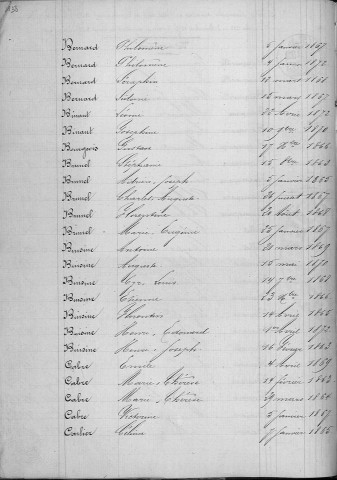 Bernard Philomène 6 janvier 1867
Bernard Philomène 4 janvier 1872
Bernard Séraphin mars 1868
Bernard 15 mars 1857
Binaut Léonie 22 avril 1872
Binaut Joséphine 10 9bre 1870
Bourgeois Gustave 17 Xbre 1866
Brunel Stéphanie 15 1863
Brunel Adrien Joseph 5 janvier 1865
Brunel Charles Auguste 26 juillet 1857
Brunel Florentine 20 août 1868
Brunel Marie Eugénie 25 janvier 1857
Buisine Antoine 21 mars 1869
Buisine Auguste 15 mai 1870
Buisine Louis 14 7bre 1868
Buisine Etienne 23 Xbre 1866
Buisine 14 avril 1866
Buisine Henri Edouard 1er avril 1872
Buisine Henri Joseph 16 février 1863
Cabre Emile 4 avril 1869
Cabre Marie Thérèse 14 février 1862
Cabre Marie Thérèse 29 mars 1864
Cabre Victorine 5 janvier 1867
Carlier Céline 7 janvier 1865